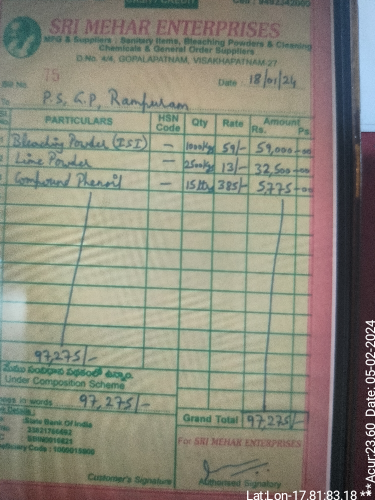 CASH / CREDIT
Cell : 9492343060
SRI MEHAR ENTERPRISES
MFG & Suppliers : Sanitary Items, Bleaching Powders & Cleaning
Chemicals & General Order Suppliers
D.No. 4/4, GOPALAPATNAM, VISAKHAPATNAM-27
Bill No. 75
Date : 18/01/24
To P.S, G.P, Rampuram
PARTICULARS HSN Code Qty Rate Amount Rs. Ps.
1 Bleaching Powder (ISI) — 1000kgs 59/- 59,000-00
2 Lime Powder — 2500kgs 13/- 32,500-00
3 Compound Phenoil — 15 385/- 5775-00
97,275/-
Under Composition Scheme
in words 97,275/-
Details :
State Bank Of India
Grand Total 97,275/-
For SRI MEHAR ENTERPRISES
Customer's Signature
Authorised Signatory
Lat:Lon-17.81:83.18 **Acur:23.60 Date: 05-02-2024